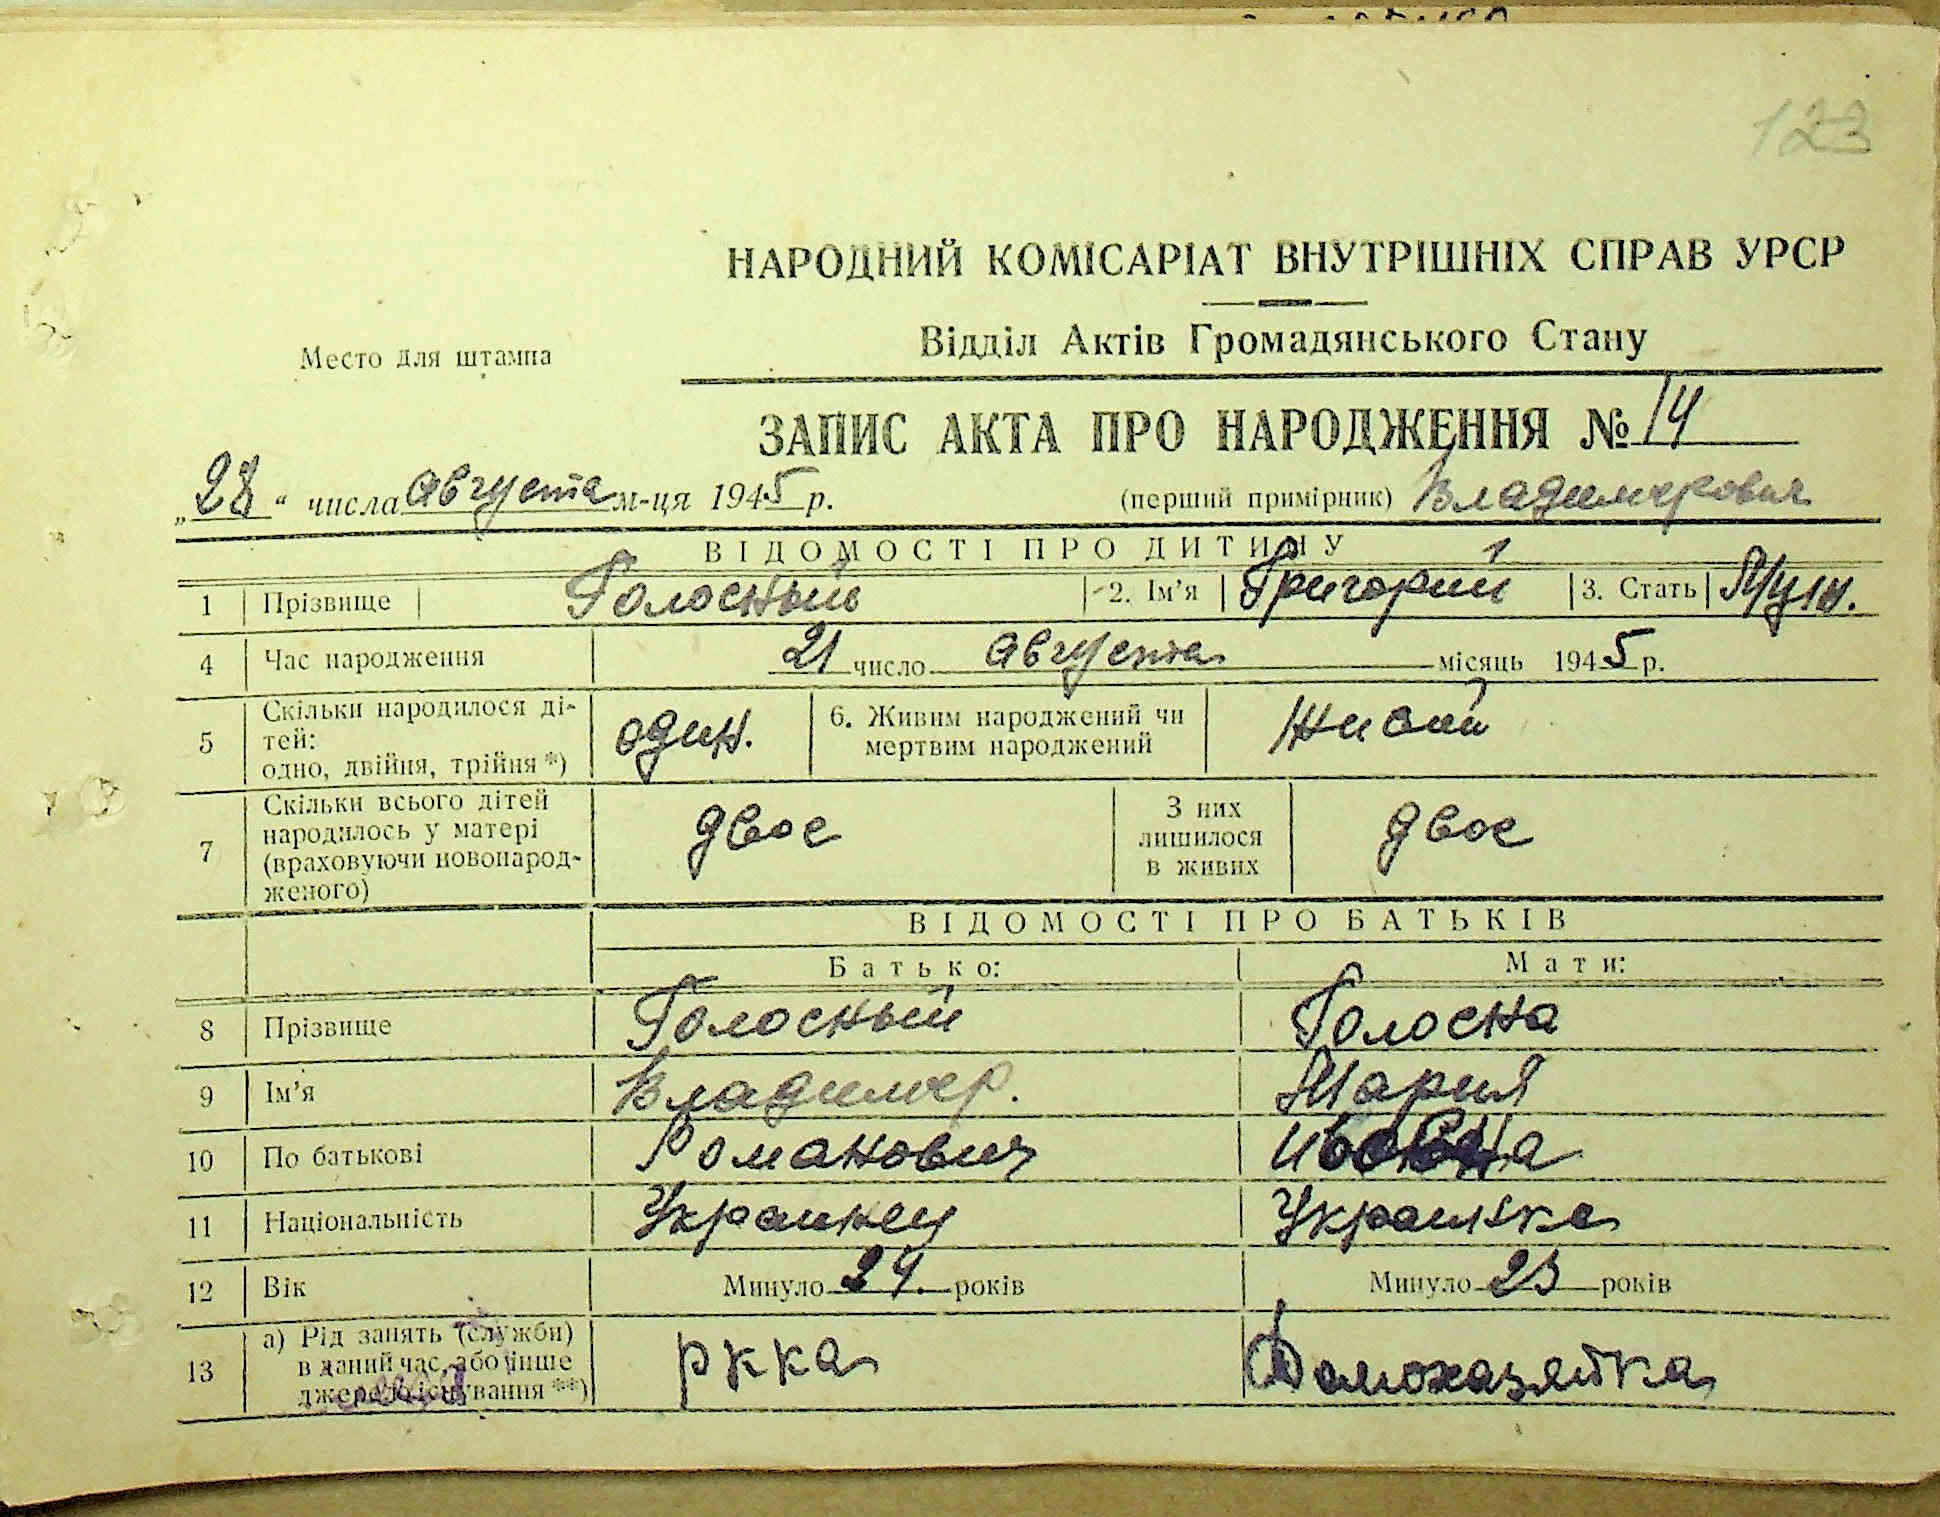 123
НАРОДНИЙ КОМІСАРІАТ ВНУТРІШНІХ СПРАВ УРСР
Відділ Актів Громадянського Стану
Место для штампа
ЗАПИС АКТА ПРО НАРОДЖЕННЯ № 14
„28“ числа Августа м-ця 1945 р. (перший примірник) Владимерович
ВІДОМОСТІ ПРО ДИТИНУ
1 Прізвище Голосный 2. Ім’я Григорий 3. Стать Муж.
4 Час народження 21 число Августа місяць 1945 р.
5 Скільки народилося ді-
тей:
одно, двійня, трійня *) один. 6. Живим народжений чи
мертвим народжений живой
7 Скільки всього дітей
народилось у матері
(враховуючи новонарод-
женого) двое З них
лишилося
в живих двое
ВІДОМОСТІ ПРО БАТЬКІВ
Батько: Мати:
8 Прізвище Голосный Голосна
9 Ім’я Владимер. Мария
10 По батькові Романович
11 Національність Украинец Украинка
12 Вік Минуло 24. років Минуло 23 років
13 а) Рід занять (служби)
в даний час, або інше
джерело існування **) РККА Домохазяйка